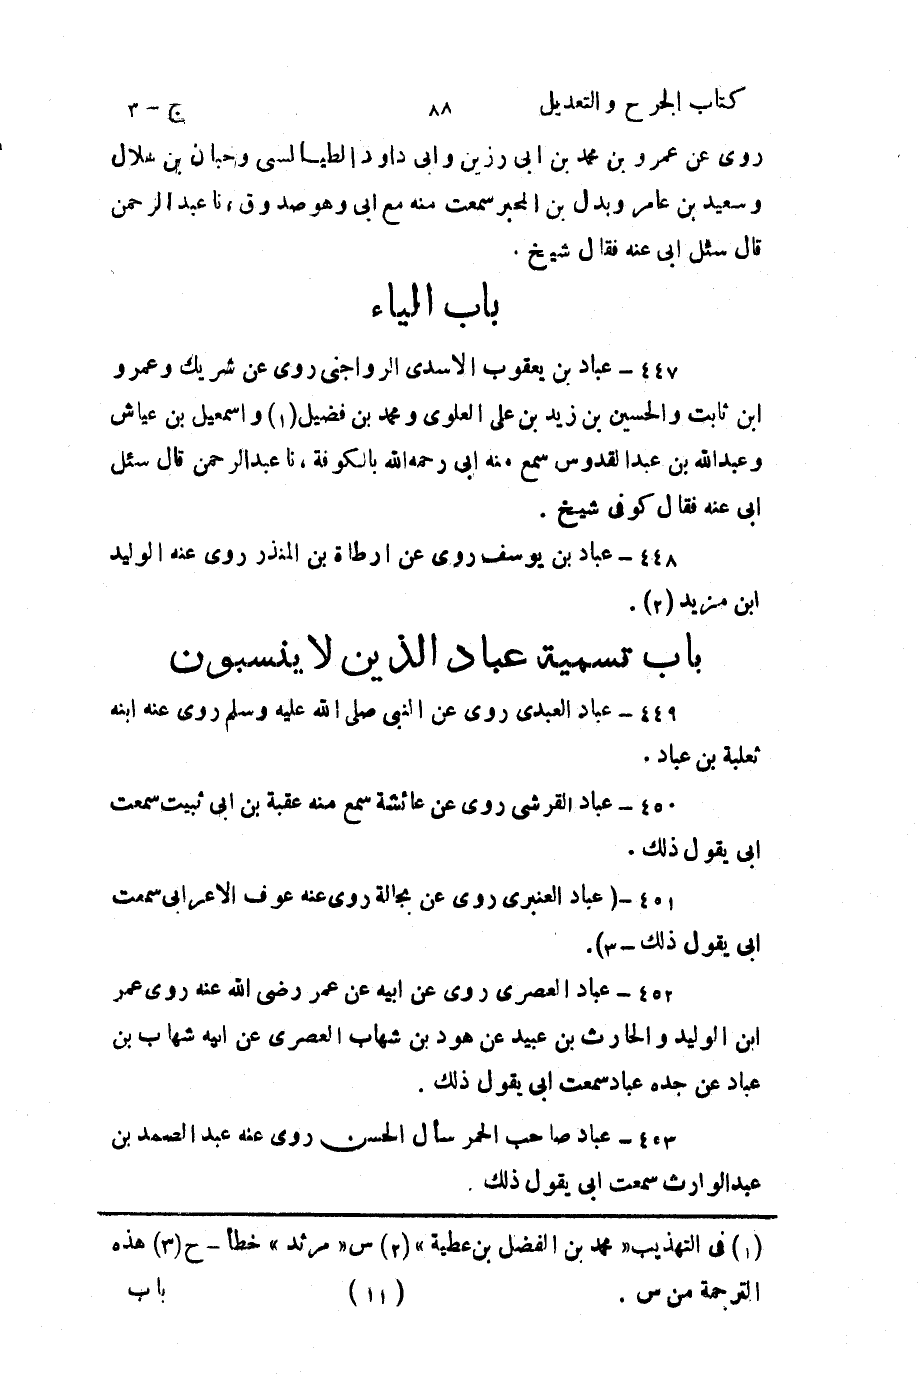 كتاب الجرح والتعديل ٨٨ ج - ٣
روى عن عمرو بن محمد بن ابى رزين وابى داود الطيالسى وحبان بن هلال
وسعيد بن عامر وبدل بن المحبر سمعت منه مع ابى وهو صدوق ، نا عبد الرحمن
قال سئل ابى عنه فقال شيخ .
باب الياء
٤٤٧ - عباد بن يعقوب الاسدى الرواجنى روى عن شريك وعمرو
ابن ثابت والحسين بن زيد بن على العلوى ومحمد بن فضيل(١) واسمعيل بن عياش
وعبدالله بن عبدالقدوس سمع منه ابى رحمه الله بالكوفة ، نا عبدالرحمن قال سئل
ابى عنه فقال كوفى شيخ .
٤٤٨ - عباد بن يوسف روى عن ارطاة بن المنذر روى عنه الوليد
ابن مزيد (٢) .
باب تسمية عباد الذين لا ينسبون
٤٤٩ - عباد العبدى روى عن النبى صلى الله عليه وسلم روى عنه ابنه
ثعلبة بن عباد .
٤٥٠ - عباد القرشى روى عن عائشة سمع منه عقبة بن ابى ثبيت سمعت
ابى يقول ذلك .
٤٥١ -( عباد العنبرى روى عن بجالة روى عنه عوف الاعرابى سمعت
ابى يقول ذلك - ٣).
٤٥٢ - عباد العصرى روى عن ابيه عن عمر رضى الله عنه روى عمر
ابن الوليد والحارث بن عبيد عن هود بن شهاب العصرى عن ابيه شهاب بن
عباد عن جده عباد سمعت ابى يقول ذلك .
٤٥٣ - عباد صاحب الحمر سأل الحسن روى عنه عبد الصمد بن
عبدالوارث سمعت ابى يقول ذلك .
(١) فى التهذيب « محمد بن الفضل بن عطية » (٢) س « مرثد » خطأ - ح (٣) هذه
الترجمة من س . (١١) باب